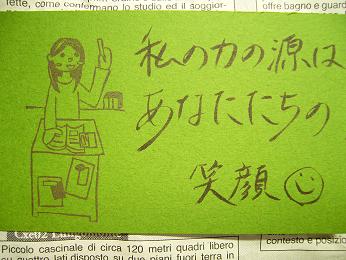 fette, come confermano lo studio ed il soggior-
offre bagno e
私の力の源は
あなたたちの
笑顔
Piccolo cascinale di circa 120 metri quadri libero
su quattro lati disposto su due piani fuori terra in
contesto e posizion